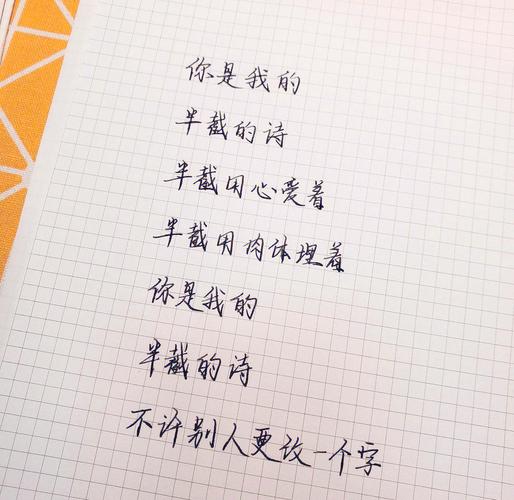 你是我的
半截的诗
半截用心爱着
半截用肉体埋着
你是我的
半截的诗
不许别人更改一个字